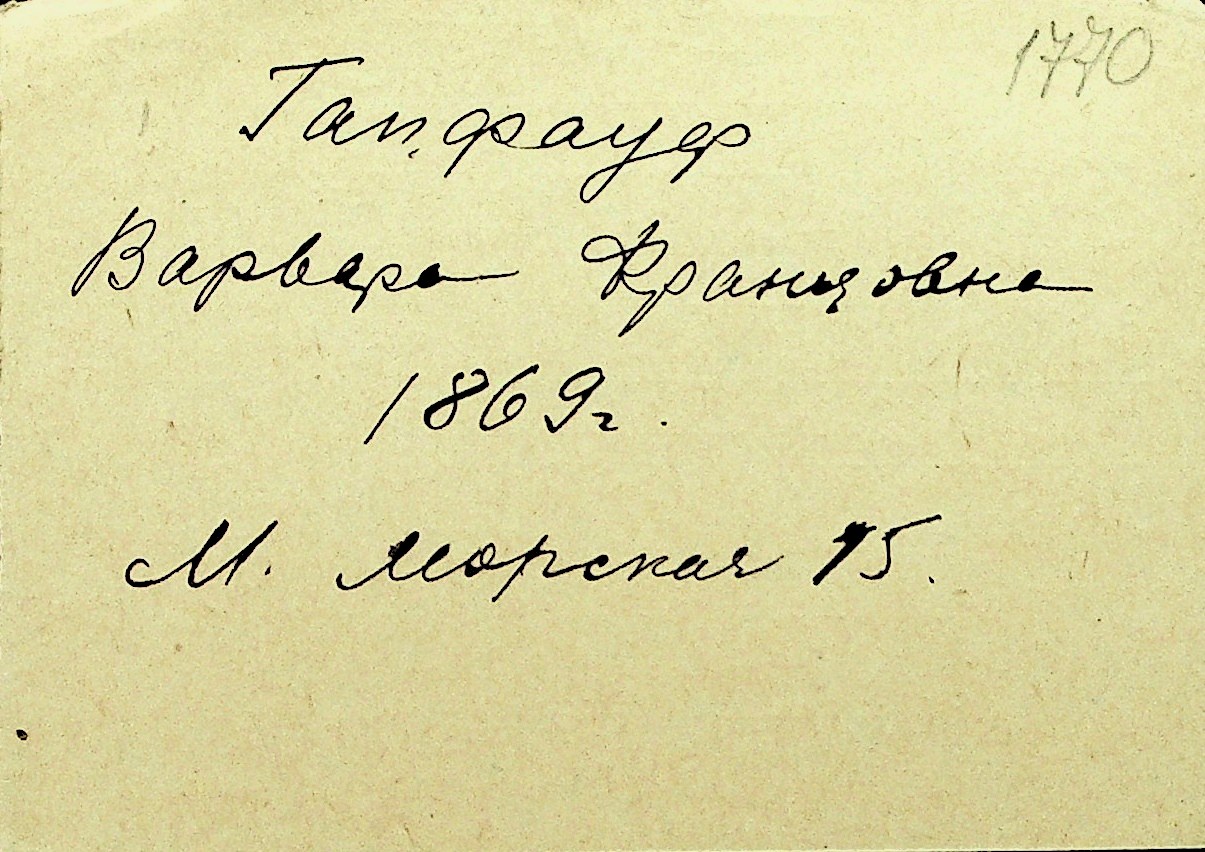 1770
Гапфауф
Варвара Францовна
1869г.
М. Морская 15.